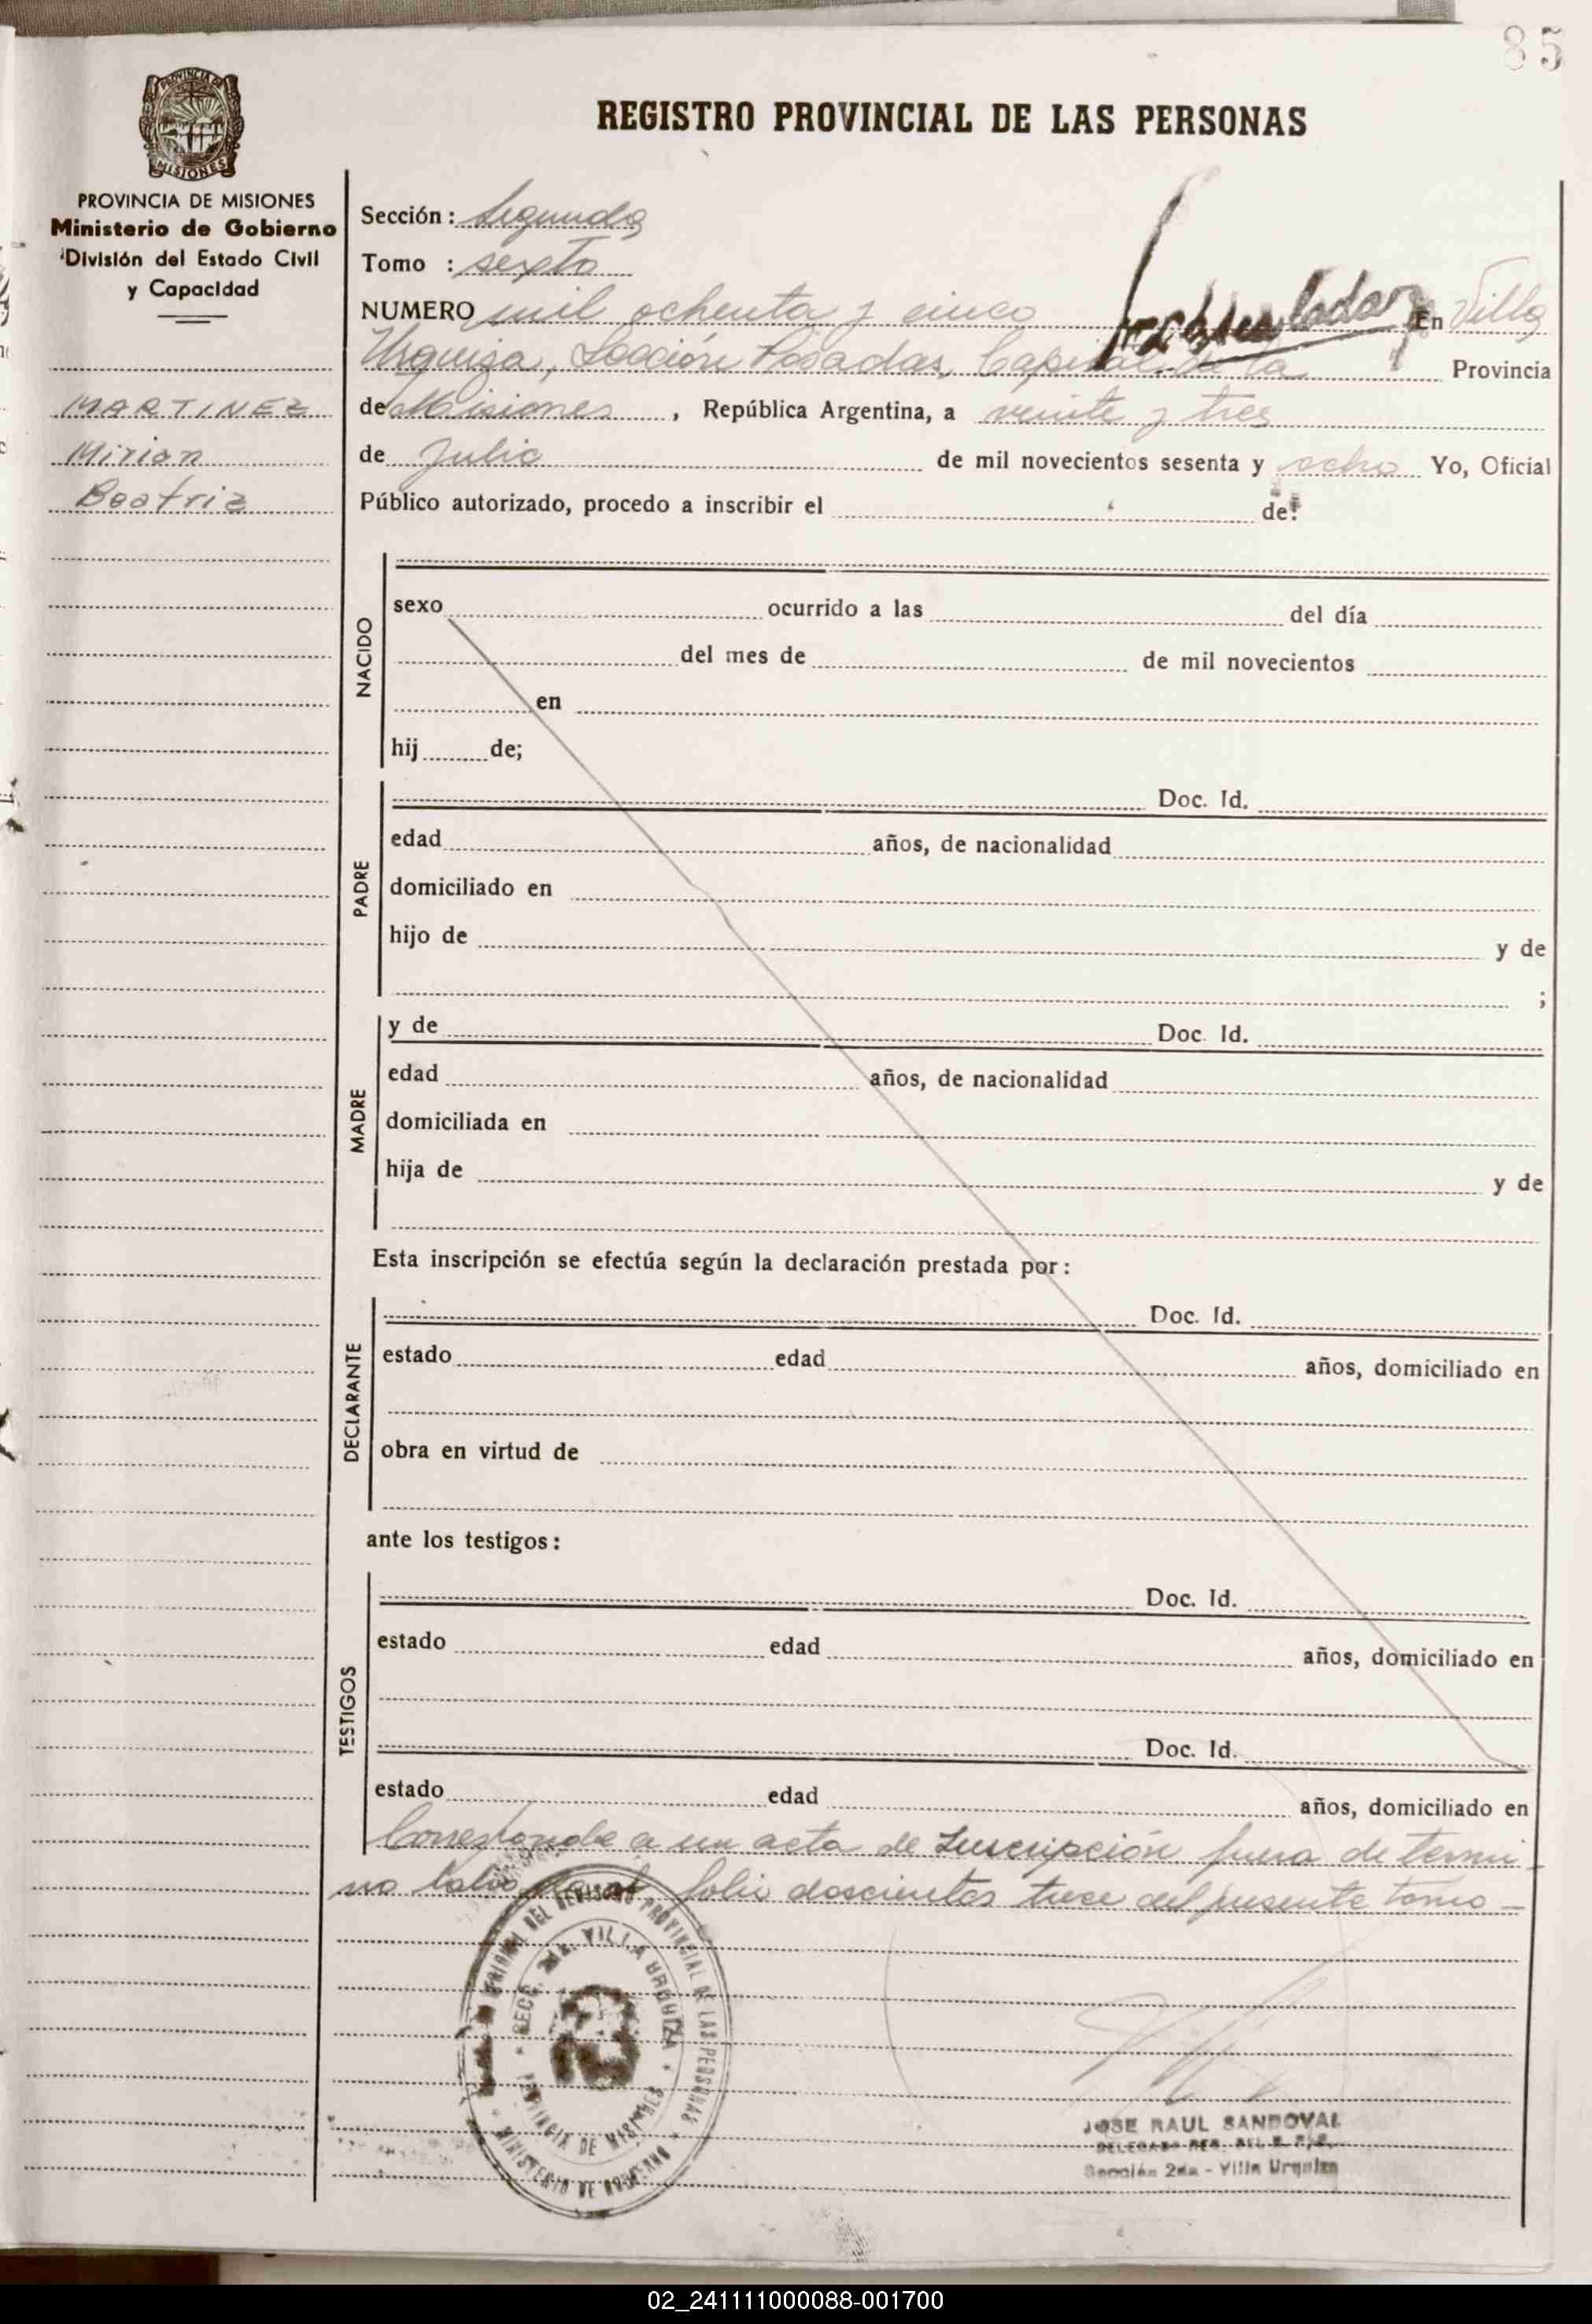 85
PROVINCIA DE
MISIONES
REGISTRO PROVINCIAL DE LAS PERSONAS
PROVINCIA DE MISIONES
Ministerio de Gobierno
División del Estado Civil
y Capacidad
MARTINEZ
Mirian
Beatriz
Sección: Segunda
Tomo : sexto
NUMERO mil ochenta y cinco En Villa
Urquiza, Sección Posadas, Capital de la Provincia
de Misiones, República Argentina, a veinte y tres
de Julio de mil novecientos sesenta y ocho Yo, Oficial
Público autorizado, procedo a inscribir el de:
NACIDO
sexo ocurrido a las del día
del mes de de mil novecientos
en
hij de;
PADRE
Doc. Id.
edad años, de nacionalidad
domiciliado en
hijo de y de
;
MADRE
y de Doc. Id.
edad años, de nacionalidad
domiciliada en
hija de y de
Esta inscripción se efectúa según la declaración prestada por:
DECLARANTE
Doc. Id.
estado edad años, domiciliado en
obra en virtud de
ante los testigos:
TESTIGOS
Doc. Id.
estado edad años, domiciliado en
Doc. Id.
estado edad años, domiciliado en
Corresponde a un acta de Inscripción fuera de termi-
no folio doscientos trece del presente tomo -
DEL REGISTRO PROVINCIAL DE LAS PERSONAS
SECC. 2da. VILLA URQUIZA
PROVINCIA DE MISIONES
MINISTERIO DE GOBIERNO
JOSE RAUL SANDOVAL
DELEGADO REG. DEL R. P. P.
Sección 2da - Villa Urquiza
02_241111000088-001700